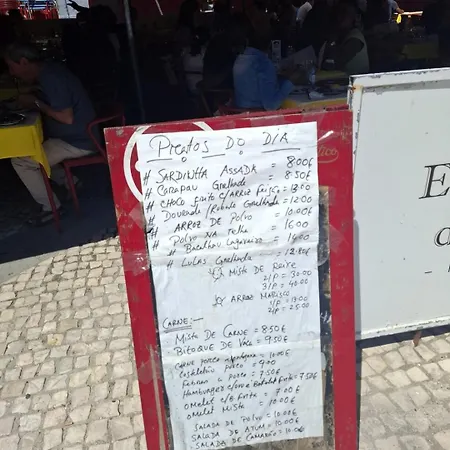 Pratos DO DIA
# SARDINHA ASSADA = 8.00€
# Carapau Grelhado = 8.50€
# CHOCO frito c/ARROZ feijão = 13.00
# Dourada/Robalo Grelhado = 12.00
# ARROZ DE POLVO = 10.00€
# POLVO NA Telha = 16.00
# Bacalhau Lagareiro = 14.00
# LULAS Grelhada = 12.80€
MISTA DE
2/P = 30.00
3/P = 40.00
ARROZ MARISCO
1/P = 13.00
2/P = 25.00
CARNE:
MISTA DE CARNE = 8.50€
BITOQUE DE VACA = 9.50€
CARNE PORCO = 10.00€
Costeletas porco = 9.00
a porco = 7.50€
Hamburger c/ovo e Batata frita = 7.50€
OMELET c/B frita = 7.00
OMELET Mista = 10.00€
SALADA DE POLVO = 10.00€
SALADA DE ATUM = 10.00€
SALADA DE CAMARÃO = 10.00€
E